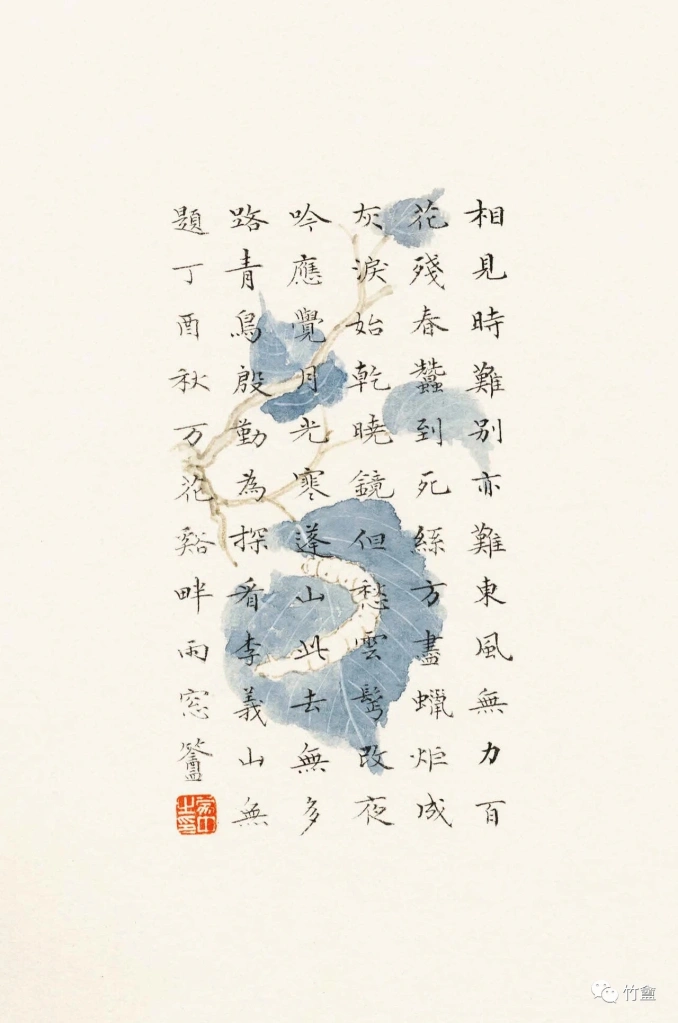 相見時難別亦難東風無力百
花殘春蠶到死絲方盡蠟炬成
灰淚始乾曉鏡但愁雲鬢改夜
吟應覺月光寒蓬山此去無多
路青鳥殷勤為探看李義山無
題丁酉秋万花谿畔雨窓簦
竹盦